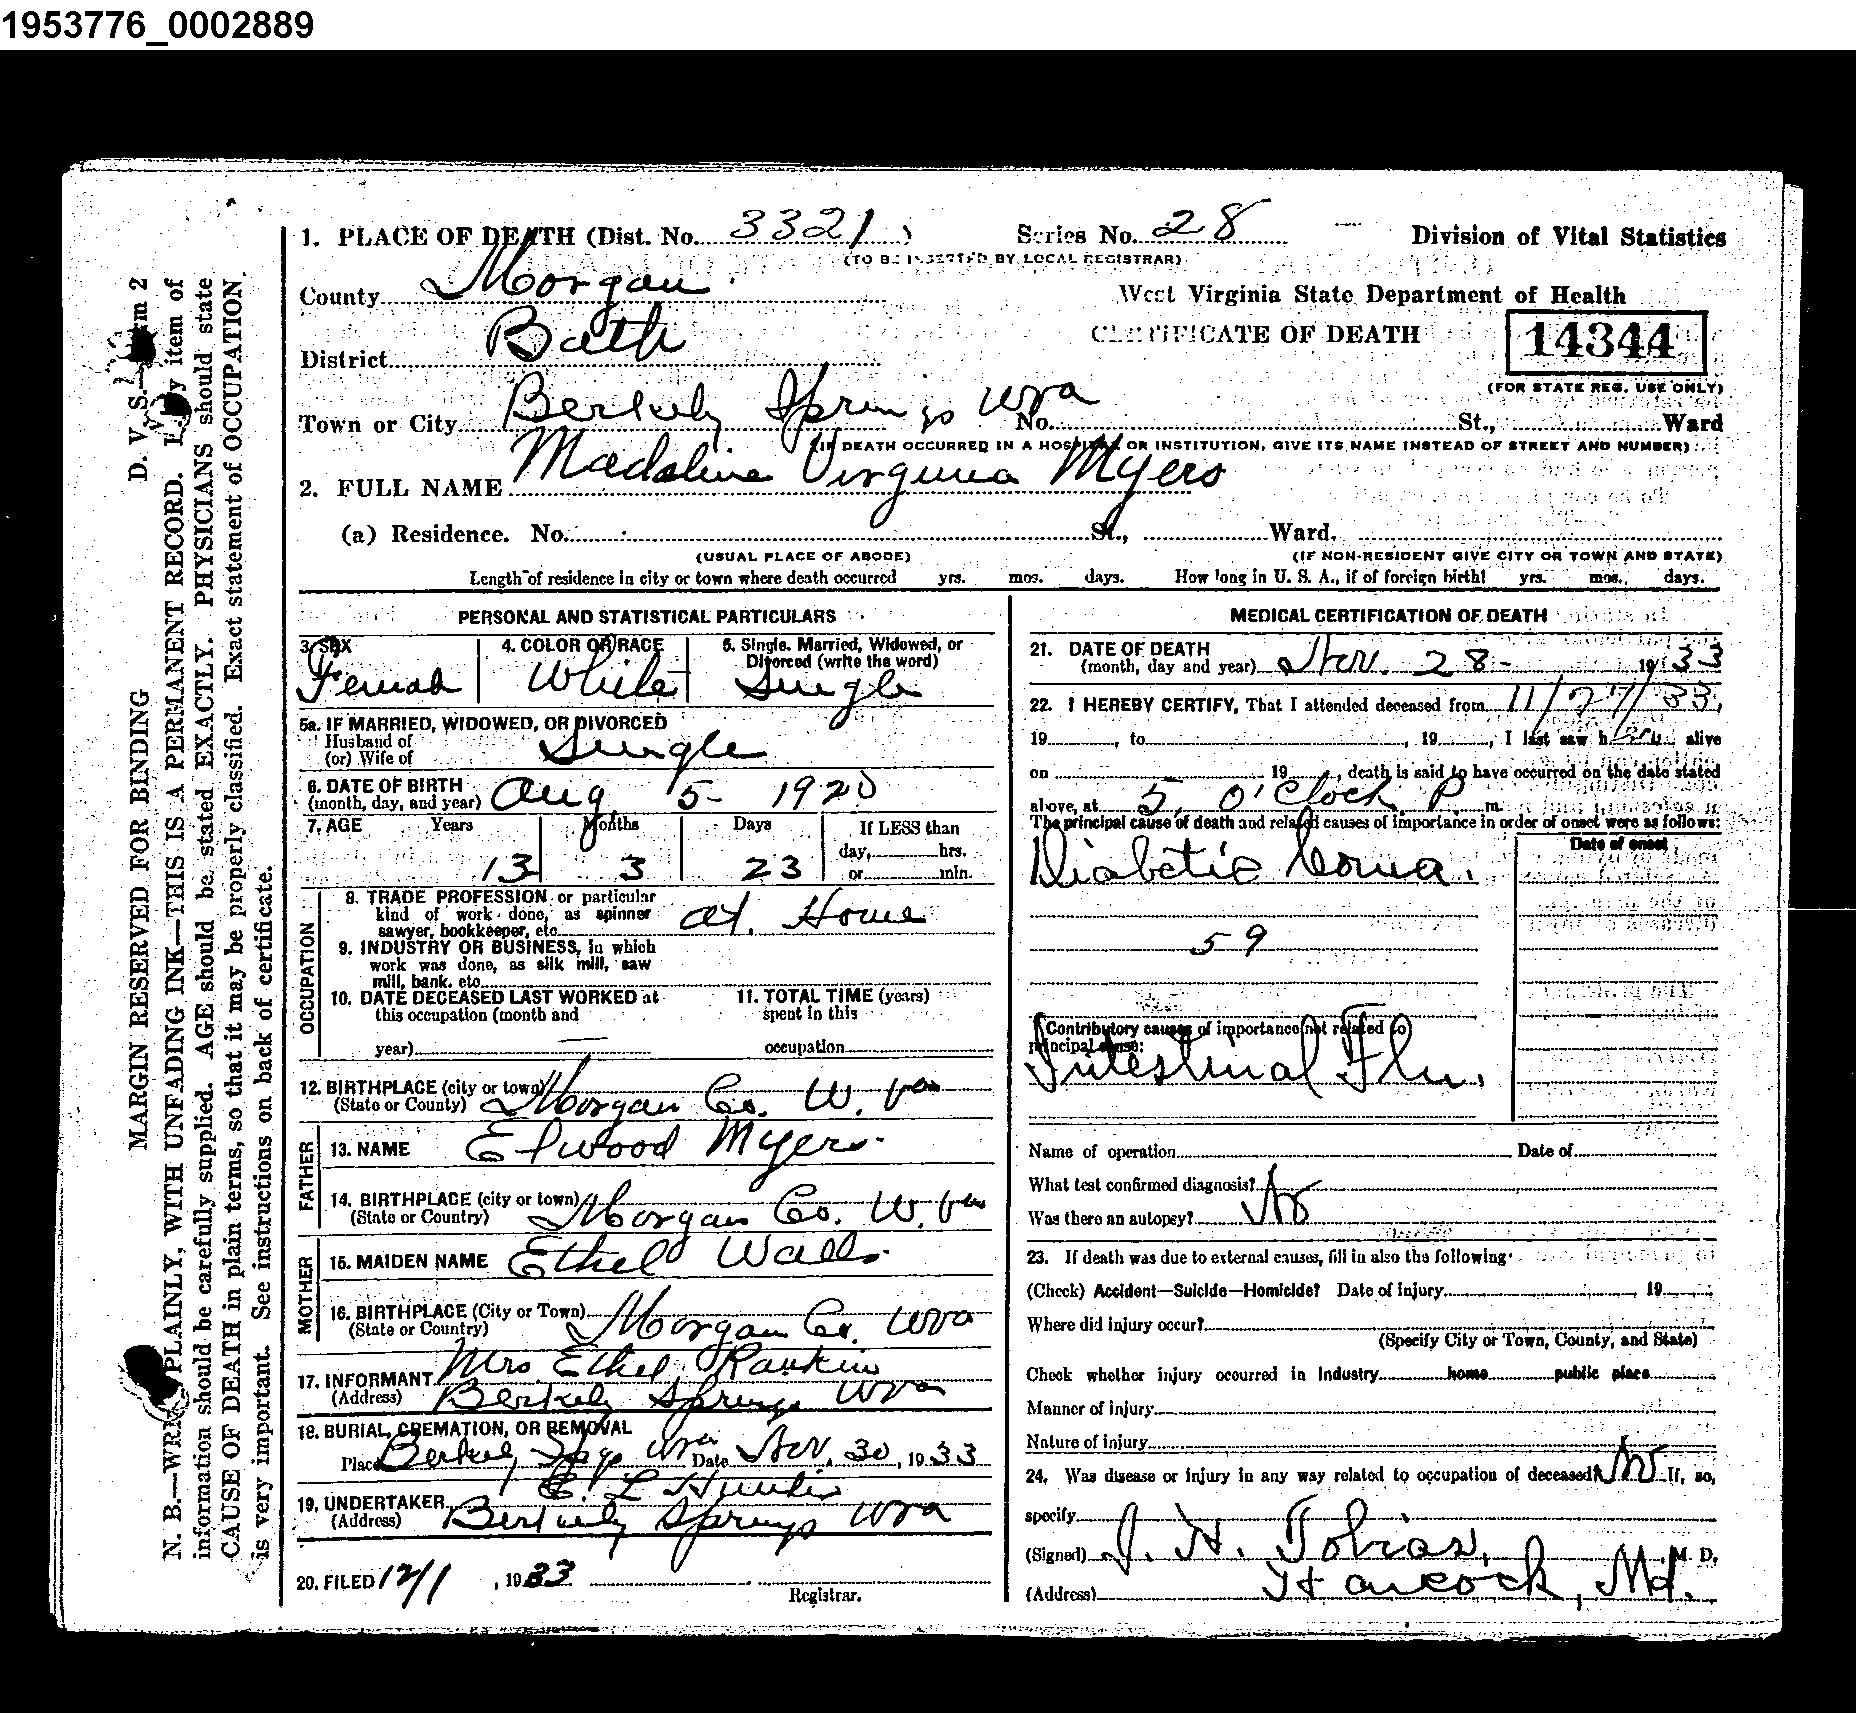 1953776_0002889
1. PLACE OF DEATH (Dist. No. 3321) Series No. 28 Division of Vital Statistics
(TO BE INSERTED BY LOCAL REGISTRAR)
County Morgan West Virginia State Department of Health
CERTIFICATE OF DEATH 14344
District Bath
(FOR STATE REG. USE ONLY)
Town or City Berkely Springs WVa No. St., Ward
(IF DEATH OCCURRED IN A HOSPITAL OR INSTITUTION, GIVE ITS NAME INSTEAD OF STREET AND NUMBER)
2. FULL NAME Madaline Virginia Myers
(a) Residence. No. St., Ward.
(USUAL PLACE OF ABODE) (IF NON-RESIDENT GIVE CITY OR TOWN AND STATE)
Length of residence in city or town where death occurred yrs. mos. days. How long in U. S. A., if of foreign birth! yrs. mos. days.
PERSONAL AND STATISTICAL PARTICULARS
3. SEX 4. COLOR OR RACE 5. Single. Married, Widowed, or
Divorced (write the word)
Female White Single
5a. IF MARRIED, WIDOWED, OR DIVORCED
Husband of
(or) Wife of Single
6. DATE OF BIRTH
(month, day, and year) Aug 5- 1920
7. AGE Years Months Days If LESS than
day, hrs.
13 3 23 or min.
OCCUPATION
8. TRADE PROFESSION or particular
kind of work done, as spinner
sawyer, bookkeeper, etc. at. Home
9. INDUSTRY OR BUSINESS, in which
work was done, as silk mill, saw
mill, bank. etc.
10. DATE DECEASED LAST WORKED at 11. TOTAL TIME (years)
this occupation (month and spent in this
year) occupation
12. BIRTHPLACE (city or town)
(State or County) Morgan Co. W. Va
FATHER
13. NAME Elwood Myers.
14. BIRTHPLACE (city or town)
(State or Country) Morgan Co. W. Va
MOTHER
15. MAIDEN NAME Ethel Walls.
16. BIRTHPLACE (City or Town)
(State or Country) Morgan Co. WVa
17. INFORMANT Mrs Ethel Rankin
(Address) Berkely Springs WVa
18. BURIAL, CREMATION, OR REMOVAL
Place Berkely Spgs WVa Date Nov. 30, 1933
19. UNDERTAKER E. L Hunter
(Address) Berkely Springs WVa
20. FILED 12/1, 1933
Registrar.
MEDICAL CERTIFICATION OF DEATH
21. DATE OF DEATH
(month, day and year) Nov. 28- 1933
22. I HEREBY CERTIFY, That I attended deceased from 11/27/33,
19 , to , 19 , I last saw her alive
on 19 , death is said to have occurred on the date stated
above, at 5, O'Clock P m.
The principal cause of death and related causes of importance in order of onset were as follows:
Date of onset
Diabetic Coma.
59
Contributory causes of importance not related to
principal cause:
Intestinal Flu.
Name of operation Date of
What test confirmed diagnosis?
Was there an autopsy? No
23. If death was due to external causes, fill in also the following:
(Check) Accident—Suicide—Homicide? Date of injury 19
Where did injury occur?
(Specify City or Town, County, and State)
Check whether injury occurred in Industry home public place
Manner of injury
Nature of injury
24. Was disease or injury in any way related to occupation of deceased? No If, so,
specify
(Signed) J. H. Tobias, M D.
(Address) Hancock, Md.
D. V. S.—Form 2
MARGIN RESERVED FOR BINDING
N. B.—WRITE PLAINLY, WITH UNFADING INK—THIS IS A PERMANENT RECORD. Every item of
information should be carefully supplied. AGE should be stated EXACTLY. PHYSICIANS should state
CAUSE OF DEATH in plain terms, so that it may be properly classified. Exact statement of OCCUPATION
is very important. See instructions on back of certificate.